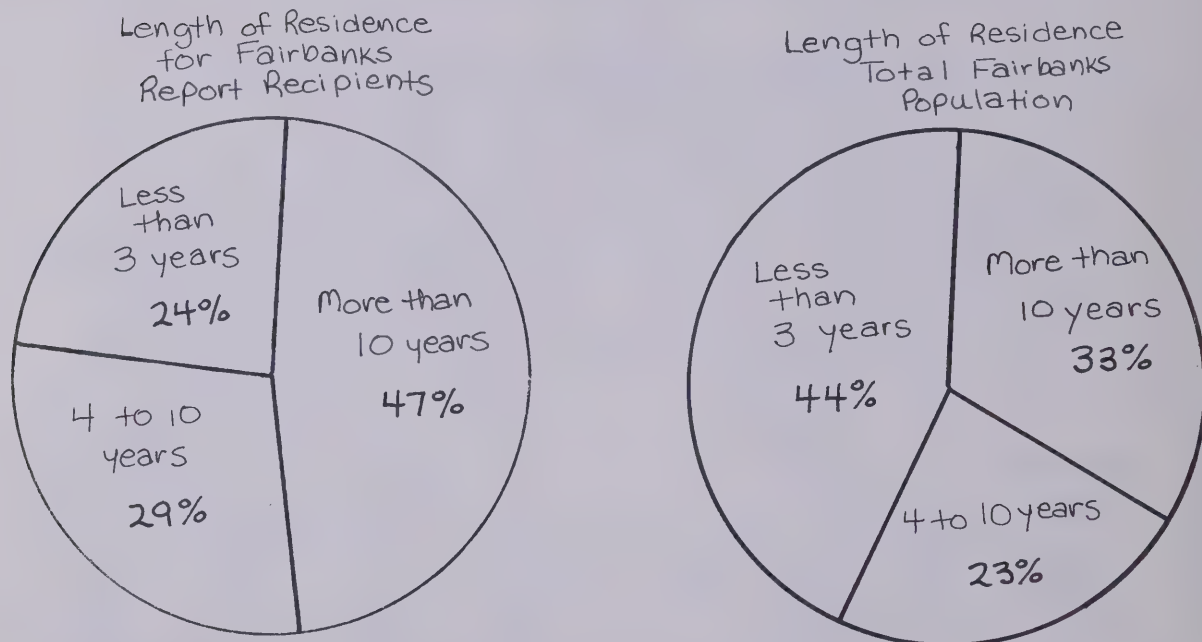 Length of Residence
for Fairbanks
Report Recipients
Less
than
3 years
24%
More than
10 years
47%
4 to 10
years
29%
Length of Residence
Total Fairbanks
Population
Less
than
3 years
44%
More than
10 years
33%
4 to 10 years
23%